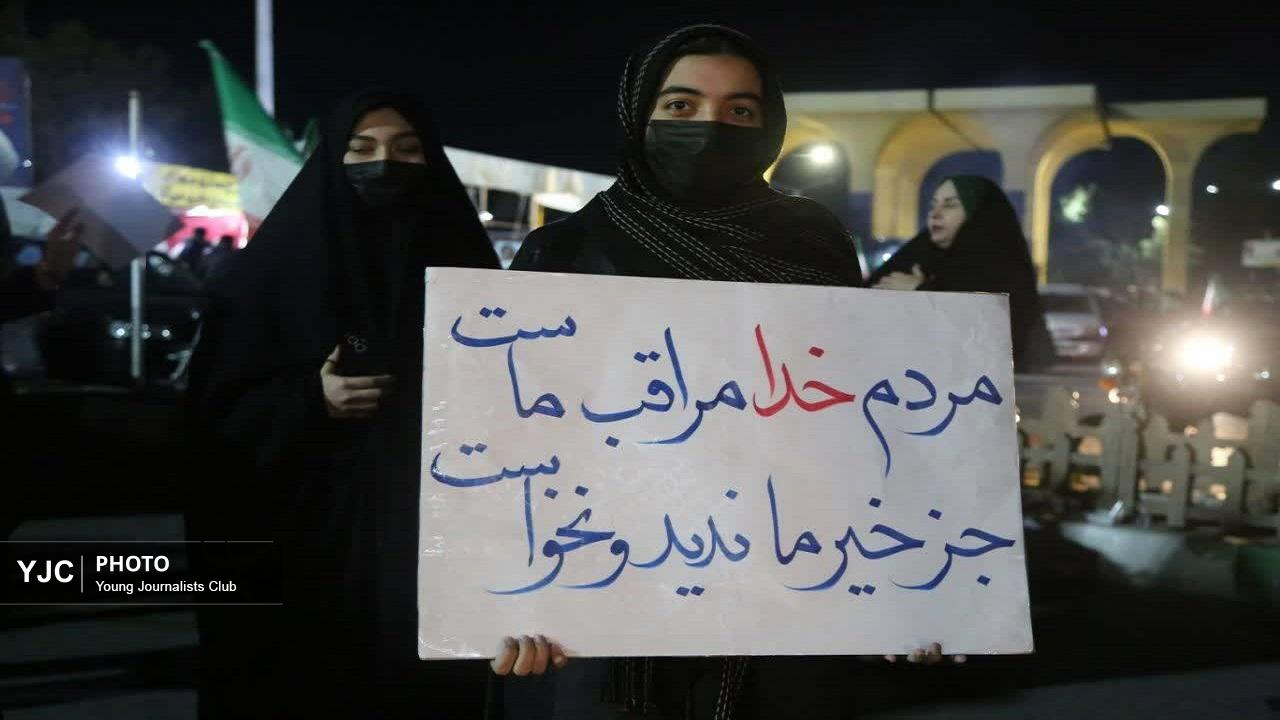 مردم خدا مراقب ماست
جز خیر ما ندید و نخوابست
YJC
PHOTO
Young Journalists Club